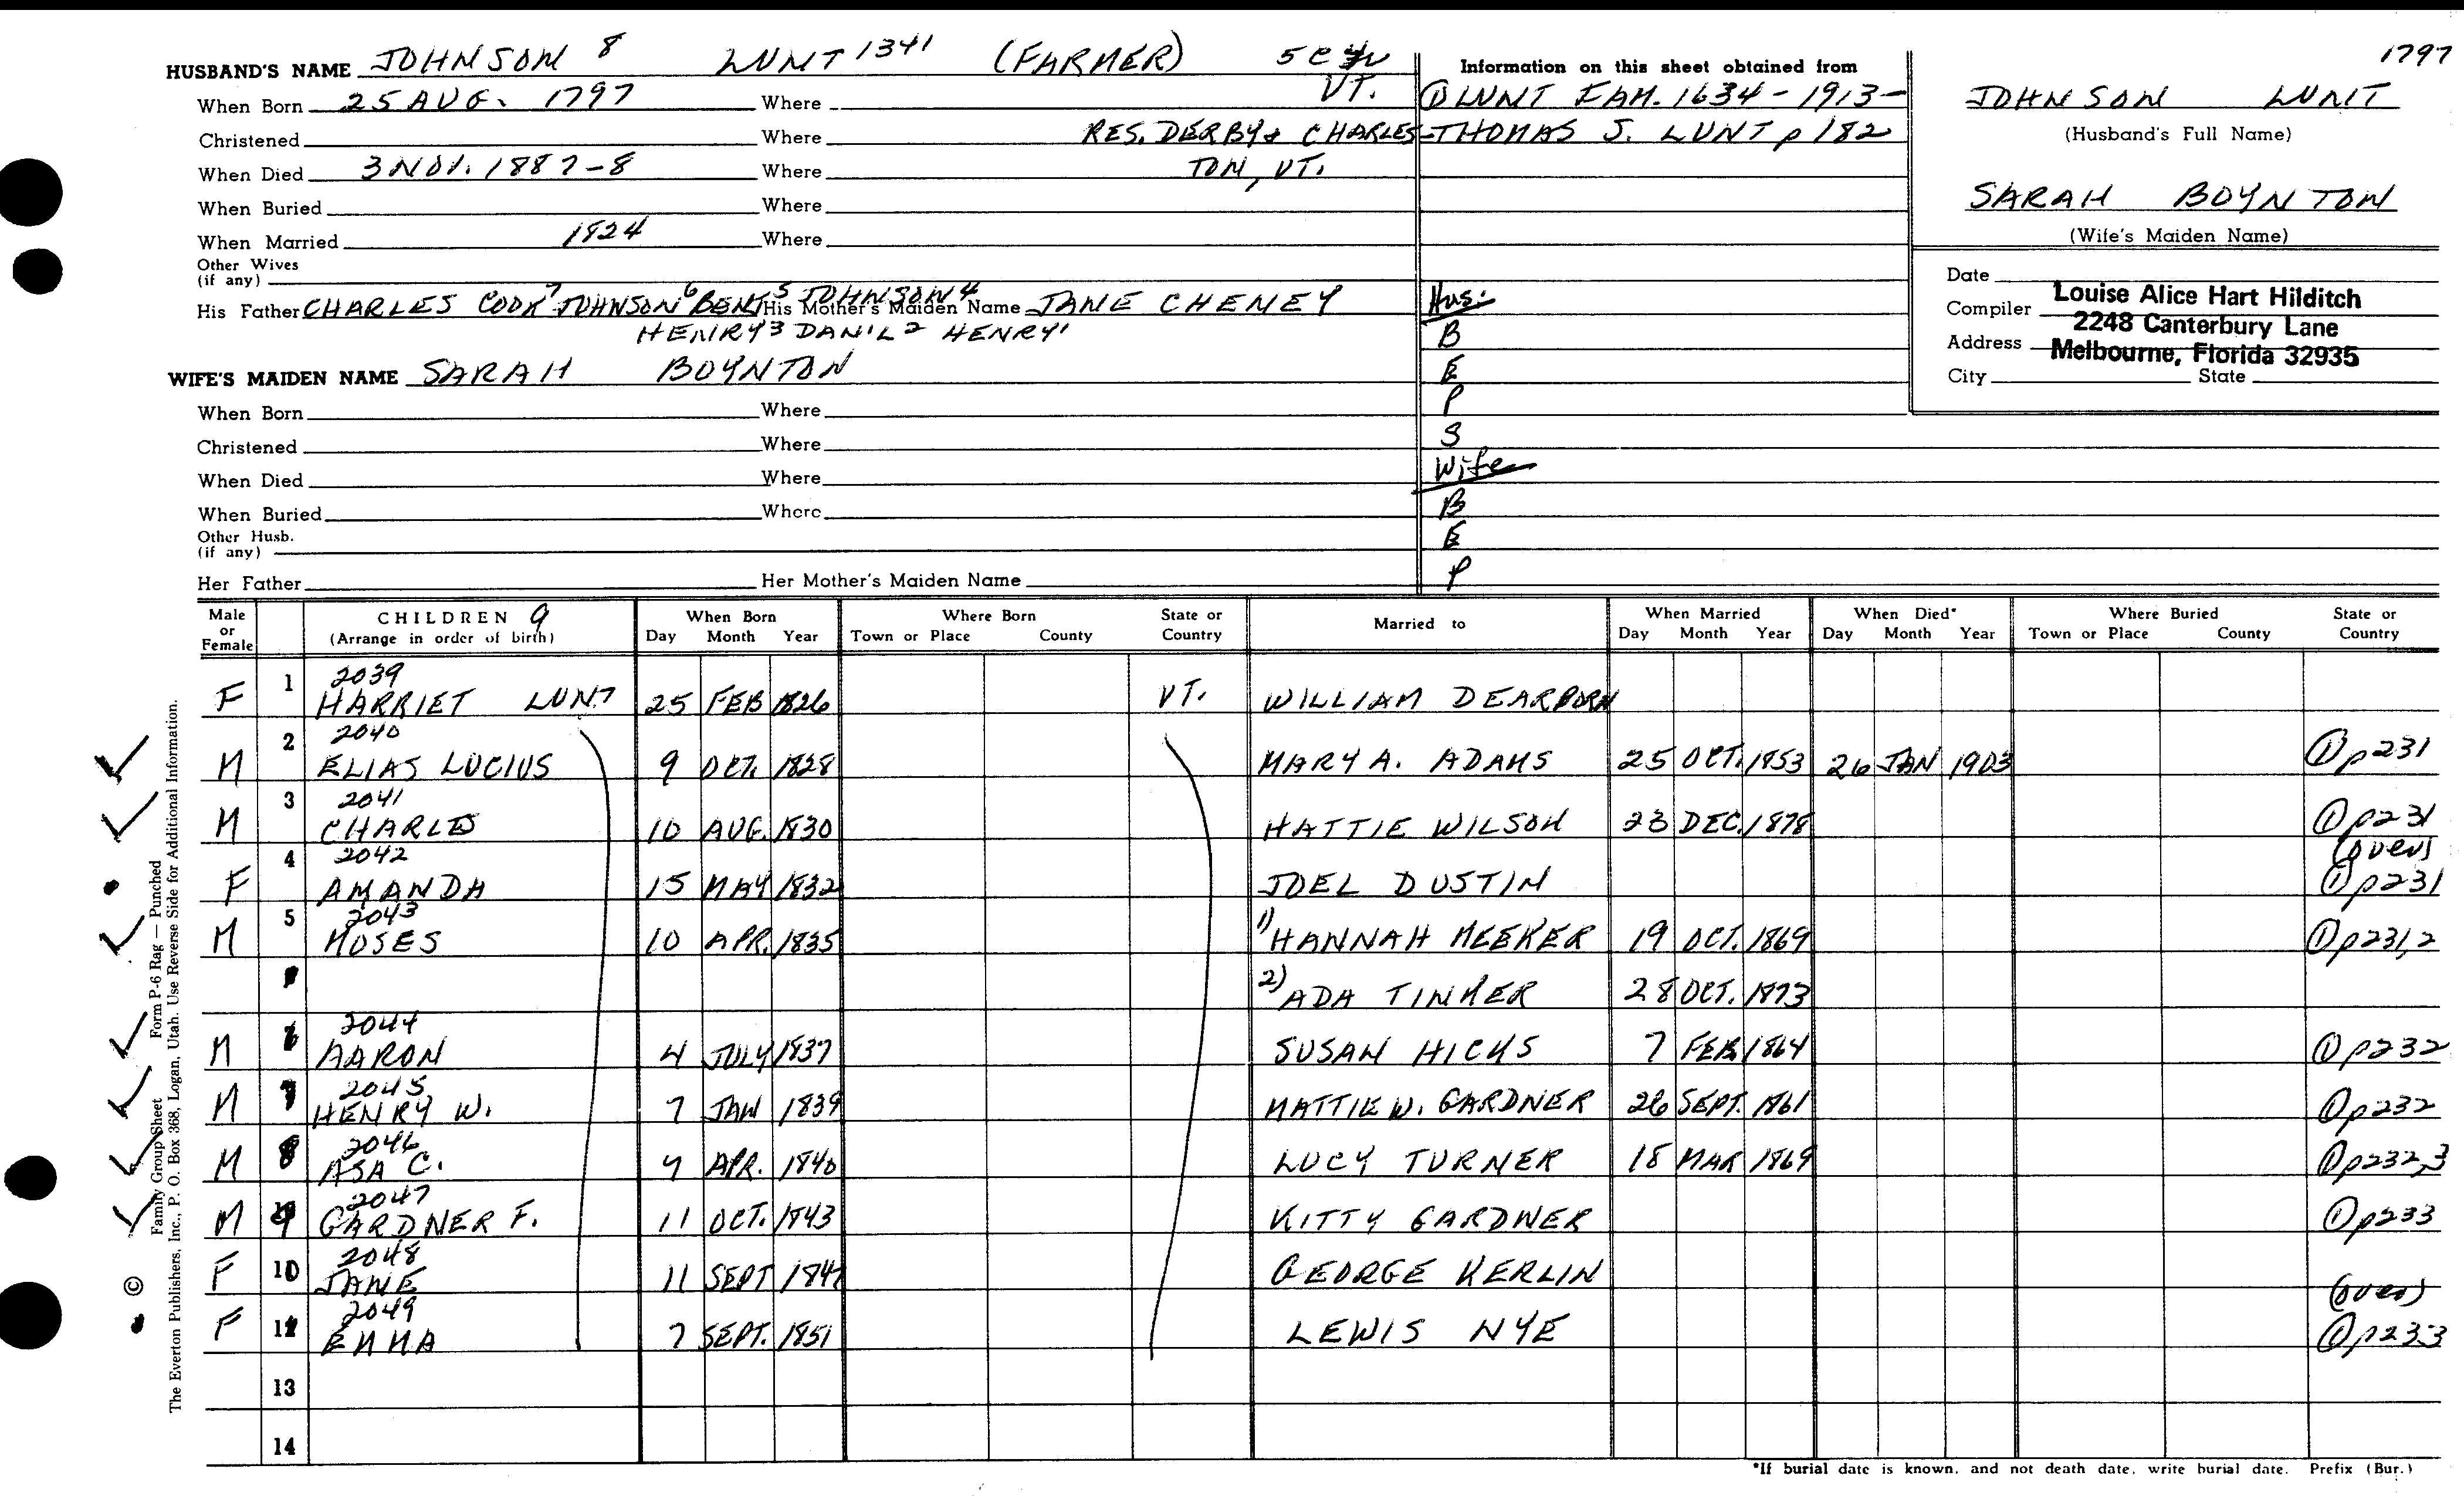 1797
HUSBAND'S NAME JOHNSON 8 LUNT 1341 (FARMER)
When Born 25 AUG. 1797 Where VT.
Christened Where RES. DERBY & CHARLES-
When Died 3 NOV. 1887-8 Where TON, VT.
When Buried Where
When Married 1824 Where
Other Wives
(if any)
His Father CHARLES COOK 7 JOHNSON 6 BENJ 5 JOHNSON 4 His Mother's Maiden Name JANE CHENEY
HENRY 3 DAN'L 2 HENRY 1
WIFE'S MAIDEN NAME SARAH BOYNTON
When Born Where
Christened Where
When Died Where
When Buried Where
Other Husb.
(if any)
Her Father Her Mother's Maiden Name
Information on this sheet obtained from
① LUNT FAM. 1634-1913-
THOMAS S. LUNT p 182
Hus:
B
E
P
S
Wife
B
E
P
JOHNSON LUNT
(Husband's Full Name)
SARAH BOYNTON
(Wife's Maiden Name)
Date
Compiler Louise Alice Hart Hilditch
2248 Canterbury Lane
Address Melbourne, Florida 32935
City State
Male or Female CHILDREN 9 (Arrange in order of birth) When Born Day Month Year Where Born Town or Place County State or Country Married to When Married Day Month Year When Died* Day Month Year Where Buried Town or Place County State or Country
2039
F 1 HARRIET LUNT 25 FEB 1826 VT. WILLIAM DEARBORN
2040
M 2 ELIAS LUCIUS 9 OCT. 1828 MARY A. ADAMS 25 OCT. 1853 26 JAN 1903 ① p231
2041
M 3 CHARLES 10 AUG. 1830 HATTIE WILSON 23 DEC. 1878 ① p231
2042 (over)
F 4 AMANDA 15 MAY 1832 JOEL DUSTIN ① p231
2043
M 5 MOSES 10 APR. 1835 1) HANNAH MEEKER 19 OCT. 1869 ① p231,2
2) ADA TINKER 28 OCT. 1873
2044
M 6 AARON 4 JULY 1837 SUSAN HICKS 7 FEB 1864 ① p232
2045
M 7 HENRY W. 7 JAN 1839 MATTIE W. GARDNER 26 SEPT. 1861 ① p232
2046
M 8 ASA C. APR. 1840 LUCY TURNER 18 MAR 1869 ① p232,3
2047
M 9 GARDNER F. 11 OCT. 1843 KITTY GARDNER ① p233
2048
F 10 JANE 11 SEPT GEORGE KERLIN
2049 (over)
F 11 EMMA 7 SEPT. 1851 LEWIS NYE ① p233
13
14
*If burial date is known, and not death date, write burial date. Prefix (Bur.)
© Family Group Sheet Form P-6 Rag — Punched
The Everton Publishers, Inc., P. O. Box 368, Logan, Utah. Use Reverse Side for Additional Information.